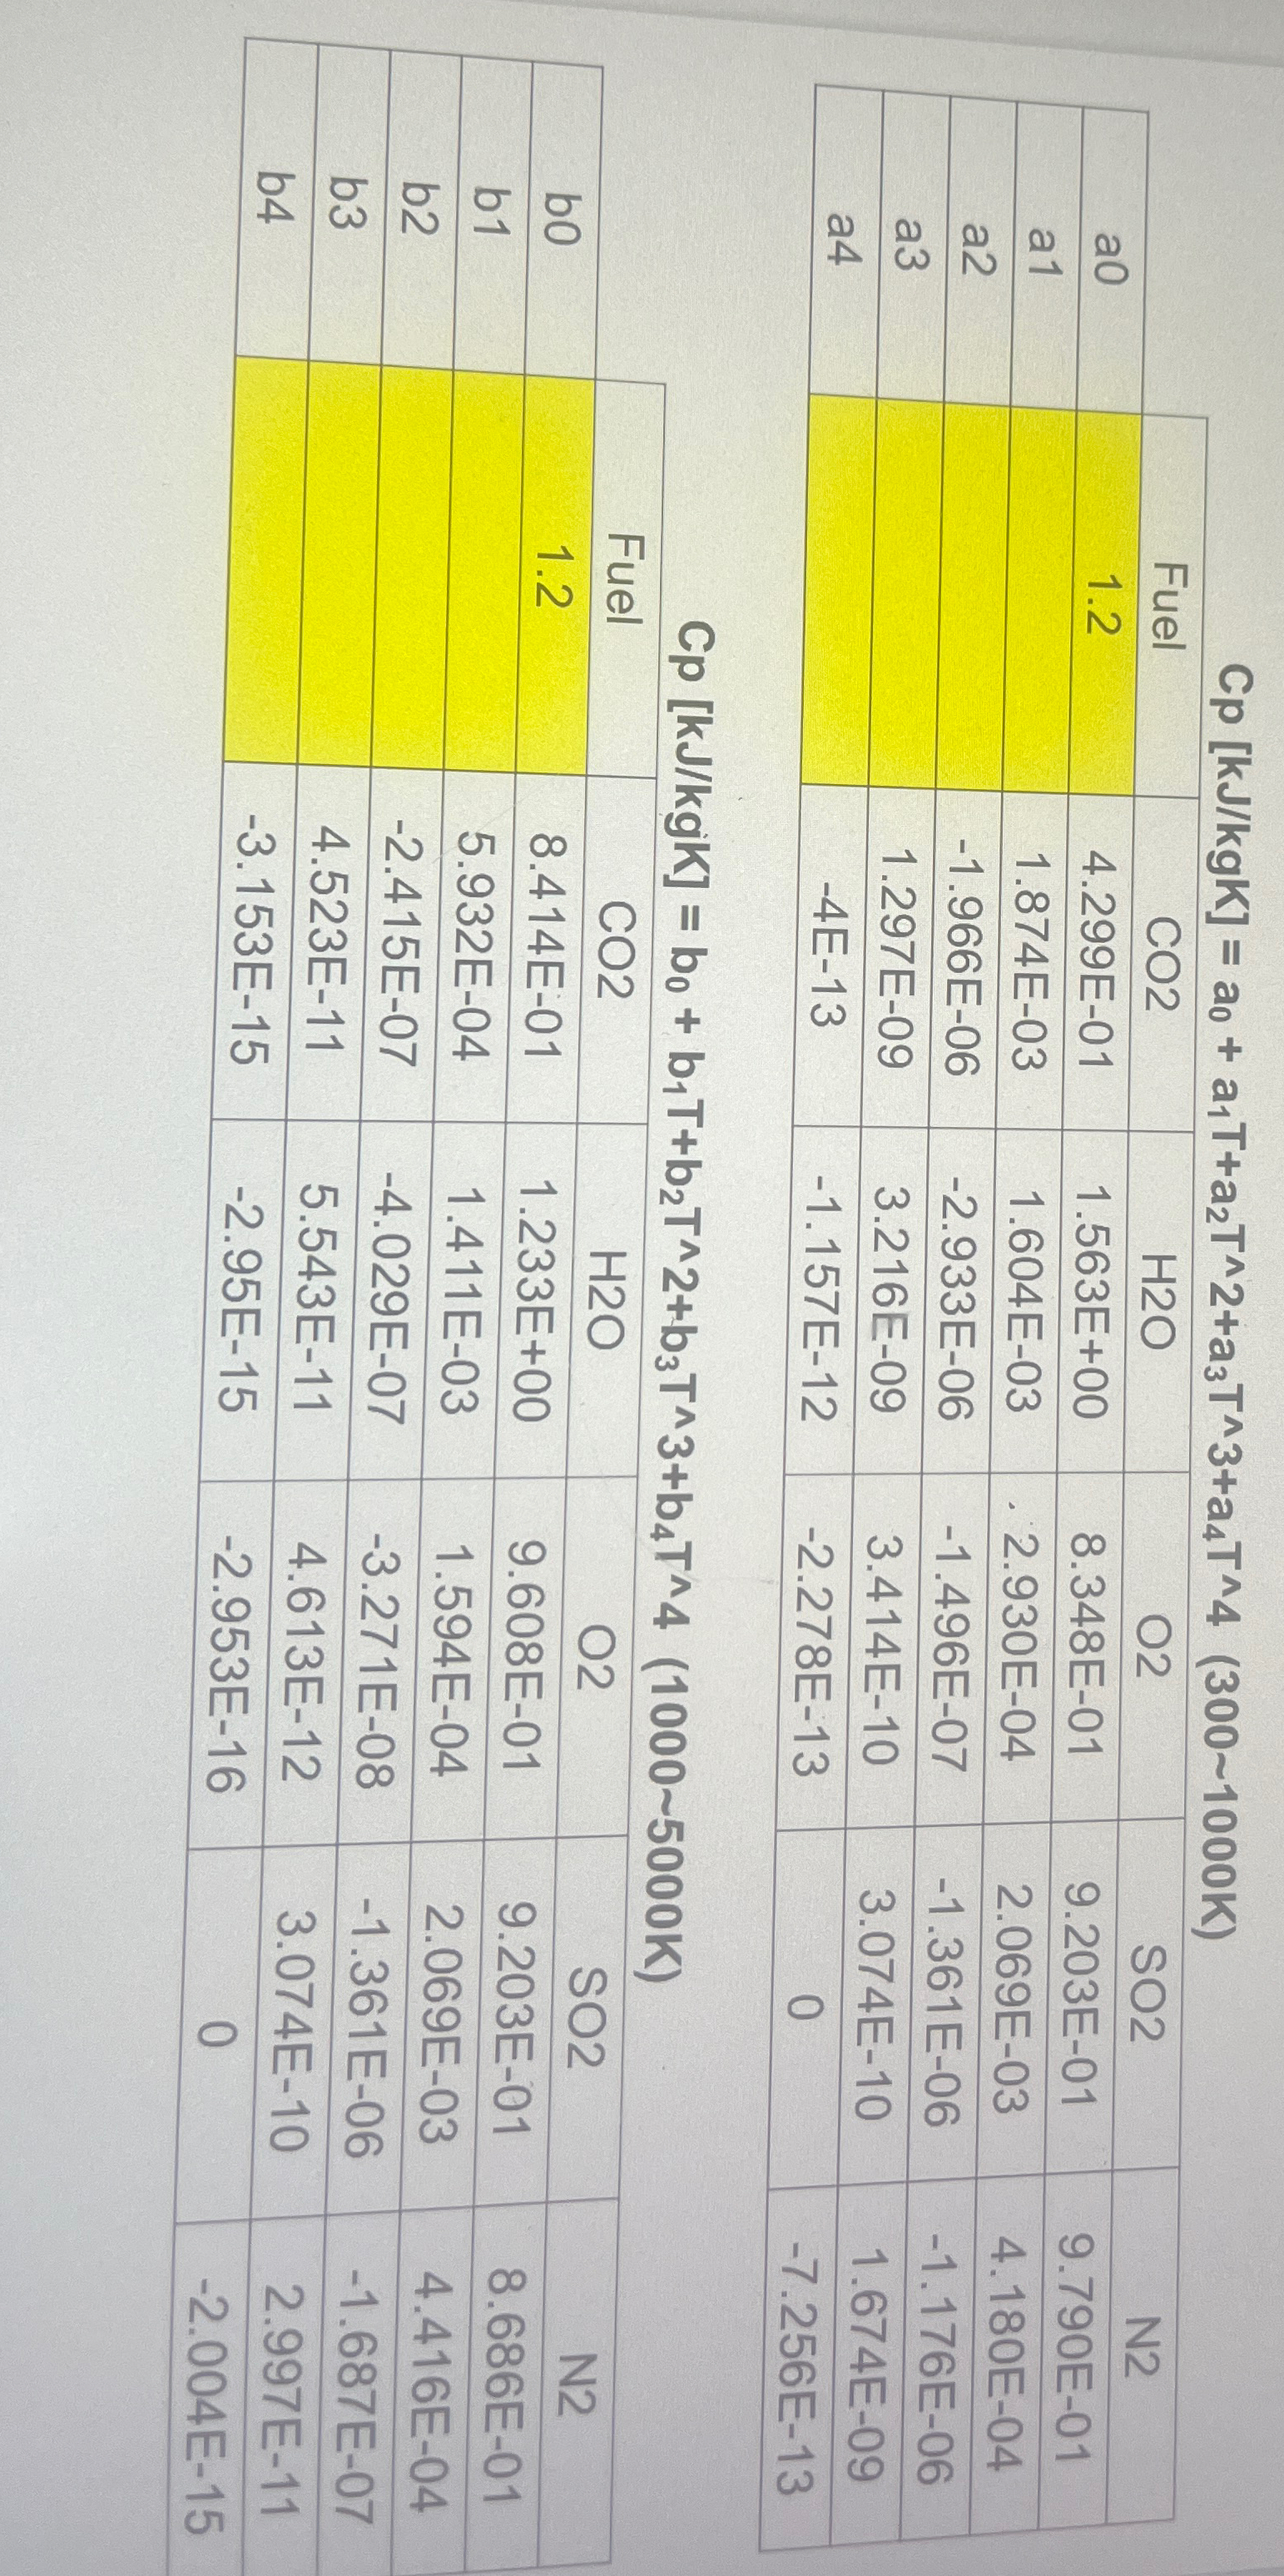 Cp [kJ/kgK] = a₀ + a₁T+a₂T^2+a₃T^3+a₄T^4 (300~1000K)
Fuel CO2 H2O O2 SO2 N2
a0 1.2 4.299E-01 1.563E+00 8.348E-01 9.203E-01 9.790E-01
a1 1.874E-03 1.604E-03 2.930E-04 2.069E-03 4.180E-04
a2 -1.966E-06 -2.933E-06 -1.496E-07 -1.361E-06 -1.176E-06
a3 1.297E-09 3.216E-09 3.414E-10 3.074E-10 1.674E-09
a4 -4E-13 -1.157E-12 -2.278E-13 0 -7.256E-13
Cp [kJ/kgK] = b₀ + b₁T+b₂T^2+b₃T^3+b₄T^4 (1000~5000K)
Fuel CO2 H2O O2 SO2 N2
b0 1.2 8.414E-01 1.233E+00 9.608E-01 9.203E-01 8.686E-01
b1 5.932E-04 1.411E-03 1.594E-04 2.069E-03 4.416E-04
b2 -2.415E-07 -4.029E-07 -3.271E-08 -1.361E-06 -1.687E-07
b3 4.523E-11 5.543E-11 4.613E-12 3.074E-10 2.997E-11
b4 -3.153E-15 -2.95E-15 -2.953E-16 0 -2.004E-15